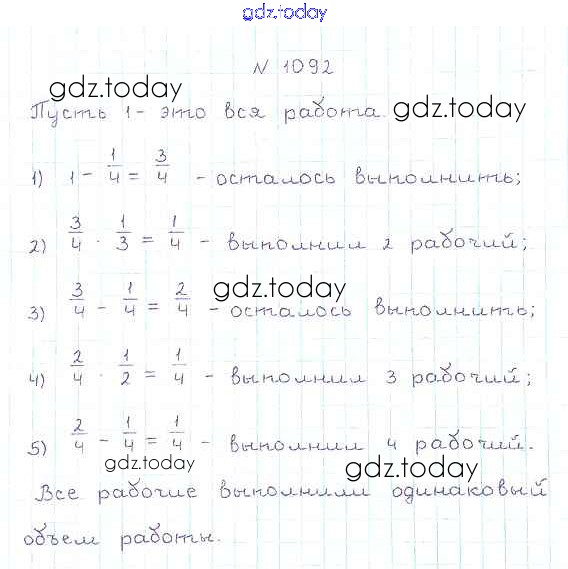 gdz.today
N 1092
gdz.today
gdz.today
Пусть 1 - это вся работа.
1) 1 - 1/4 = 3/4 - осталось выполнить;
2) 3/4 · 1/3 = 1/4 - выполнил 2 рабочий;
gdz.today
3) 3/4 - 1/4 = 2/4 - осталось выполнить;
4) 2/4 · 1/2 = 1/4 - выполнил 3 рабочий;
5) 2/4 - 1/4 = 1/4 - выполнил 4 рабочий.
gdz.today
gdz.today
Все рабочие выполнили одинаковый
объем работы.